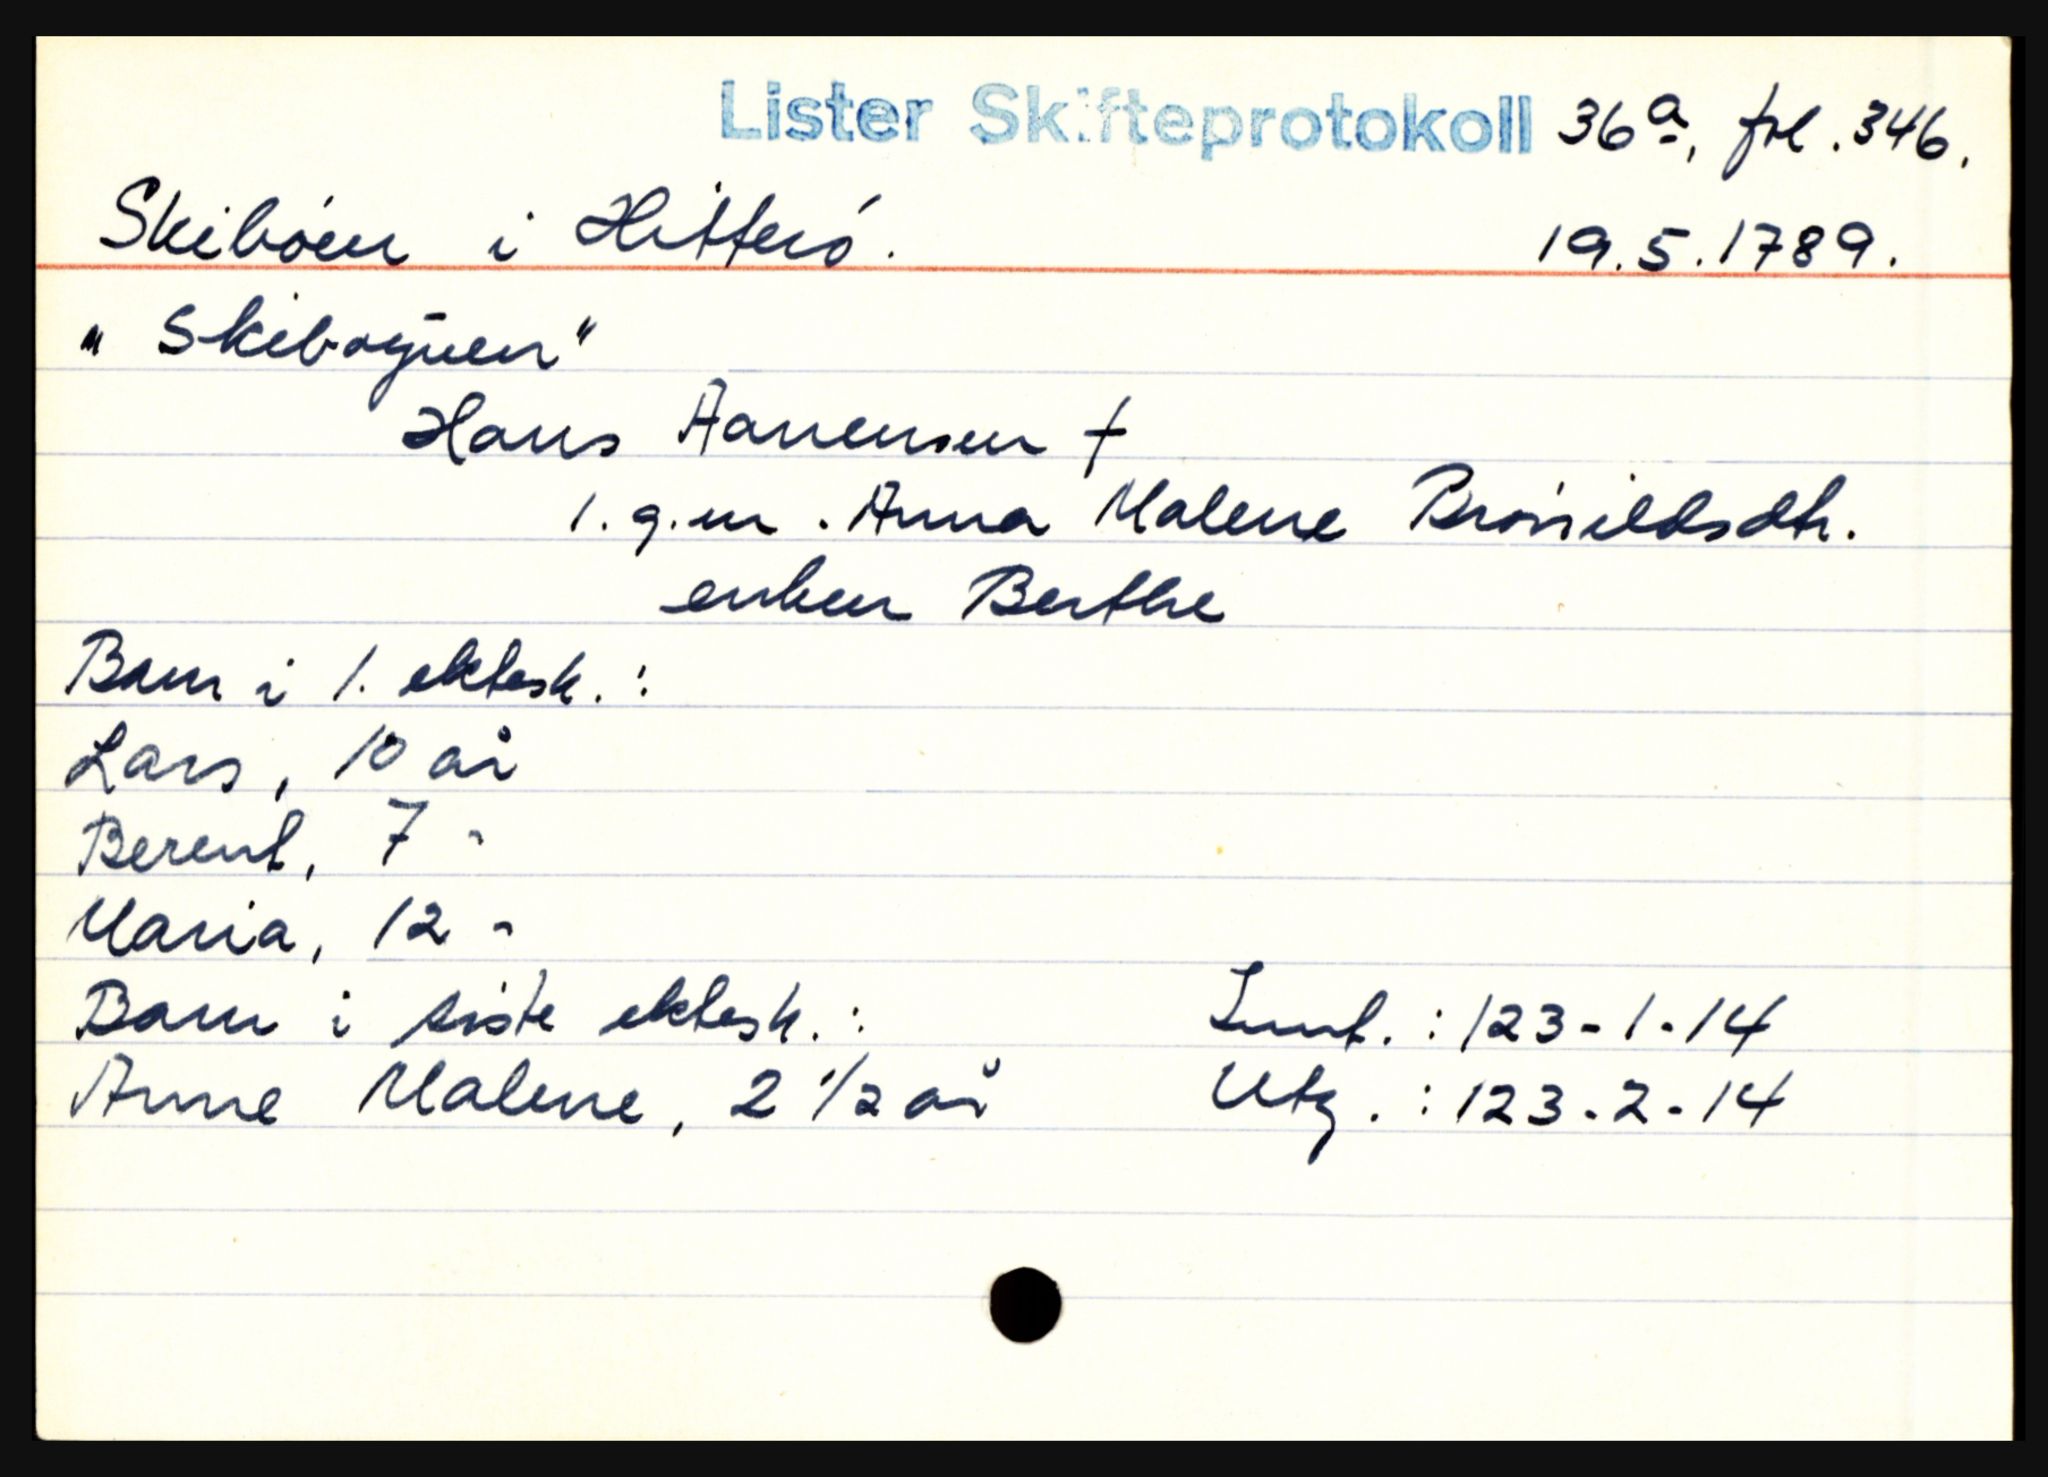 Lister Skifteprotokoll 36a, fol. 346.
Skibóen i Hitteró. 19.5.1789.
„Skibøyuen"
Hans Aanensen †
1. g.m. Anna Malene Brónildsdtr.
enken Berthe
Barn i 1. ektesk.:
Lars, 10 år
Berent, 7 "
Maria, 12 "
Barn i siste ektesk.:
Anne Malene, 2 1/2 år
Innt.: 123-1-14
Utg.: 123-2-14